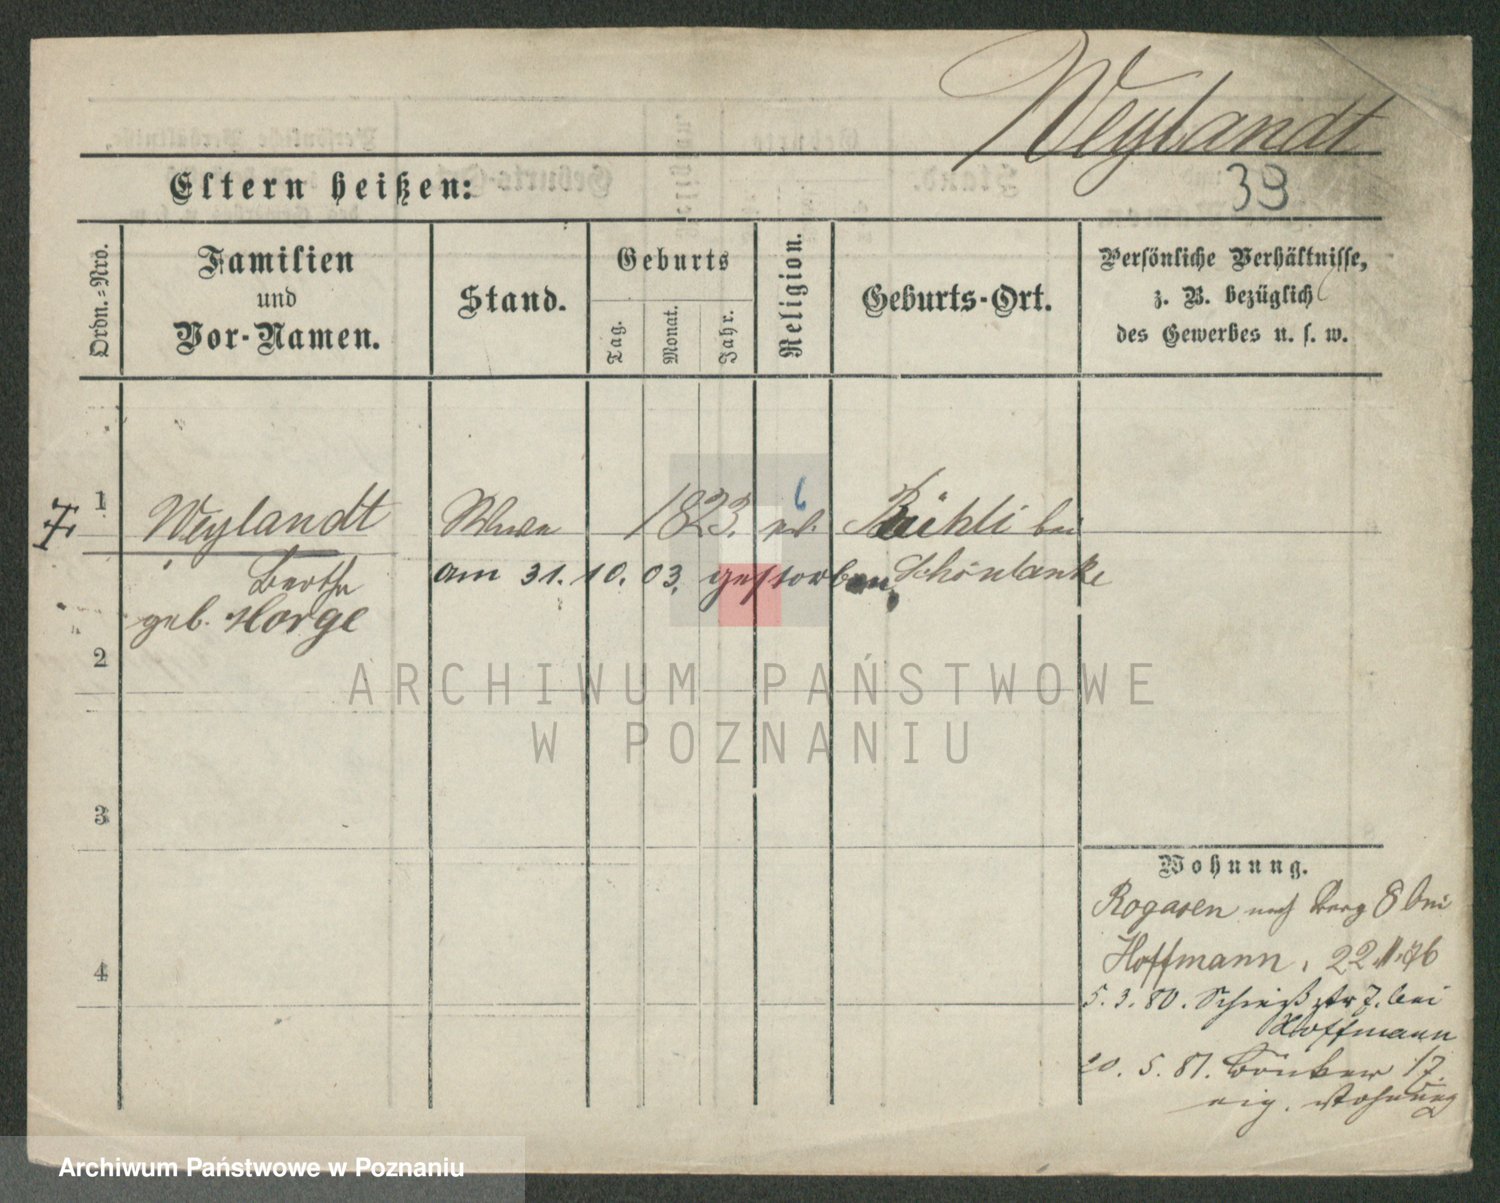 Weylandt
39
Eltern heißen:
Ordn.=Nro.
Familien
und
Vor-Namen.
Stand.
Geburts
Tag.
Monat.
Jahr.
Religion.
Geburts-Ort.
Persönliche Verhältnisse,
z. B. bezüglich
des Gewerbes u. s. w.
1
Weylandt
Berthe
geb.
1823.
bei
Schönlanke
am 31. 10. 03. gestorben
2
3
4
Wohnung.
Rogasen Berg 8 bei
Hoffmann, 22.11.76
5. 3. 80. Schießstr 7. bei
Hoffmann
20. 5. 81. 17.
eig. Wohnung
ARCHIWUM PAŃSTWOWE
W POZNANIU
Archiwum Państwowe w Poznaniu